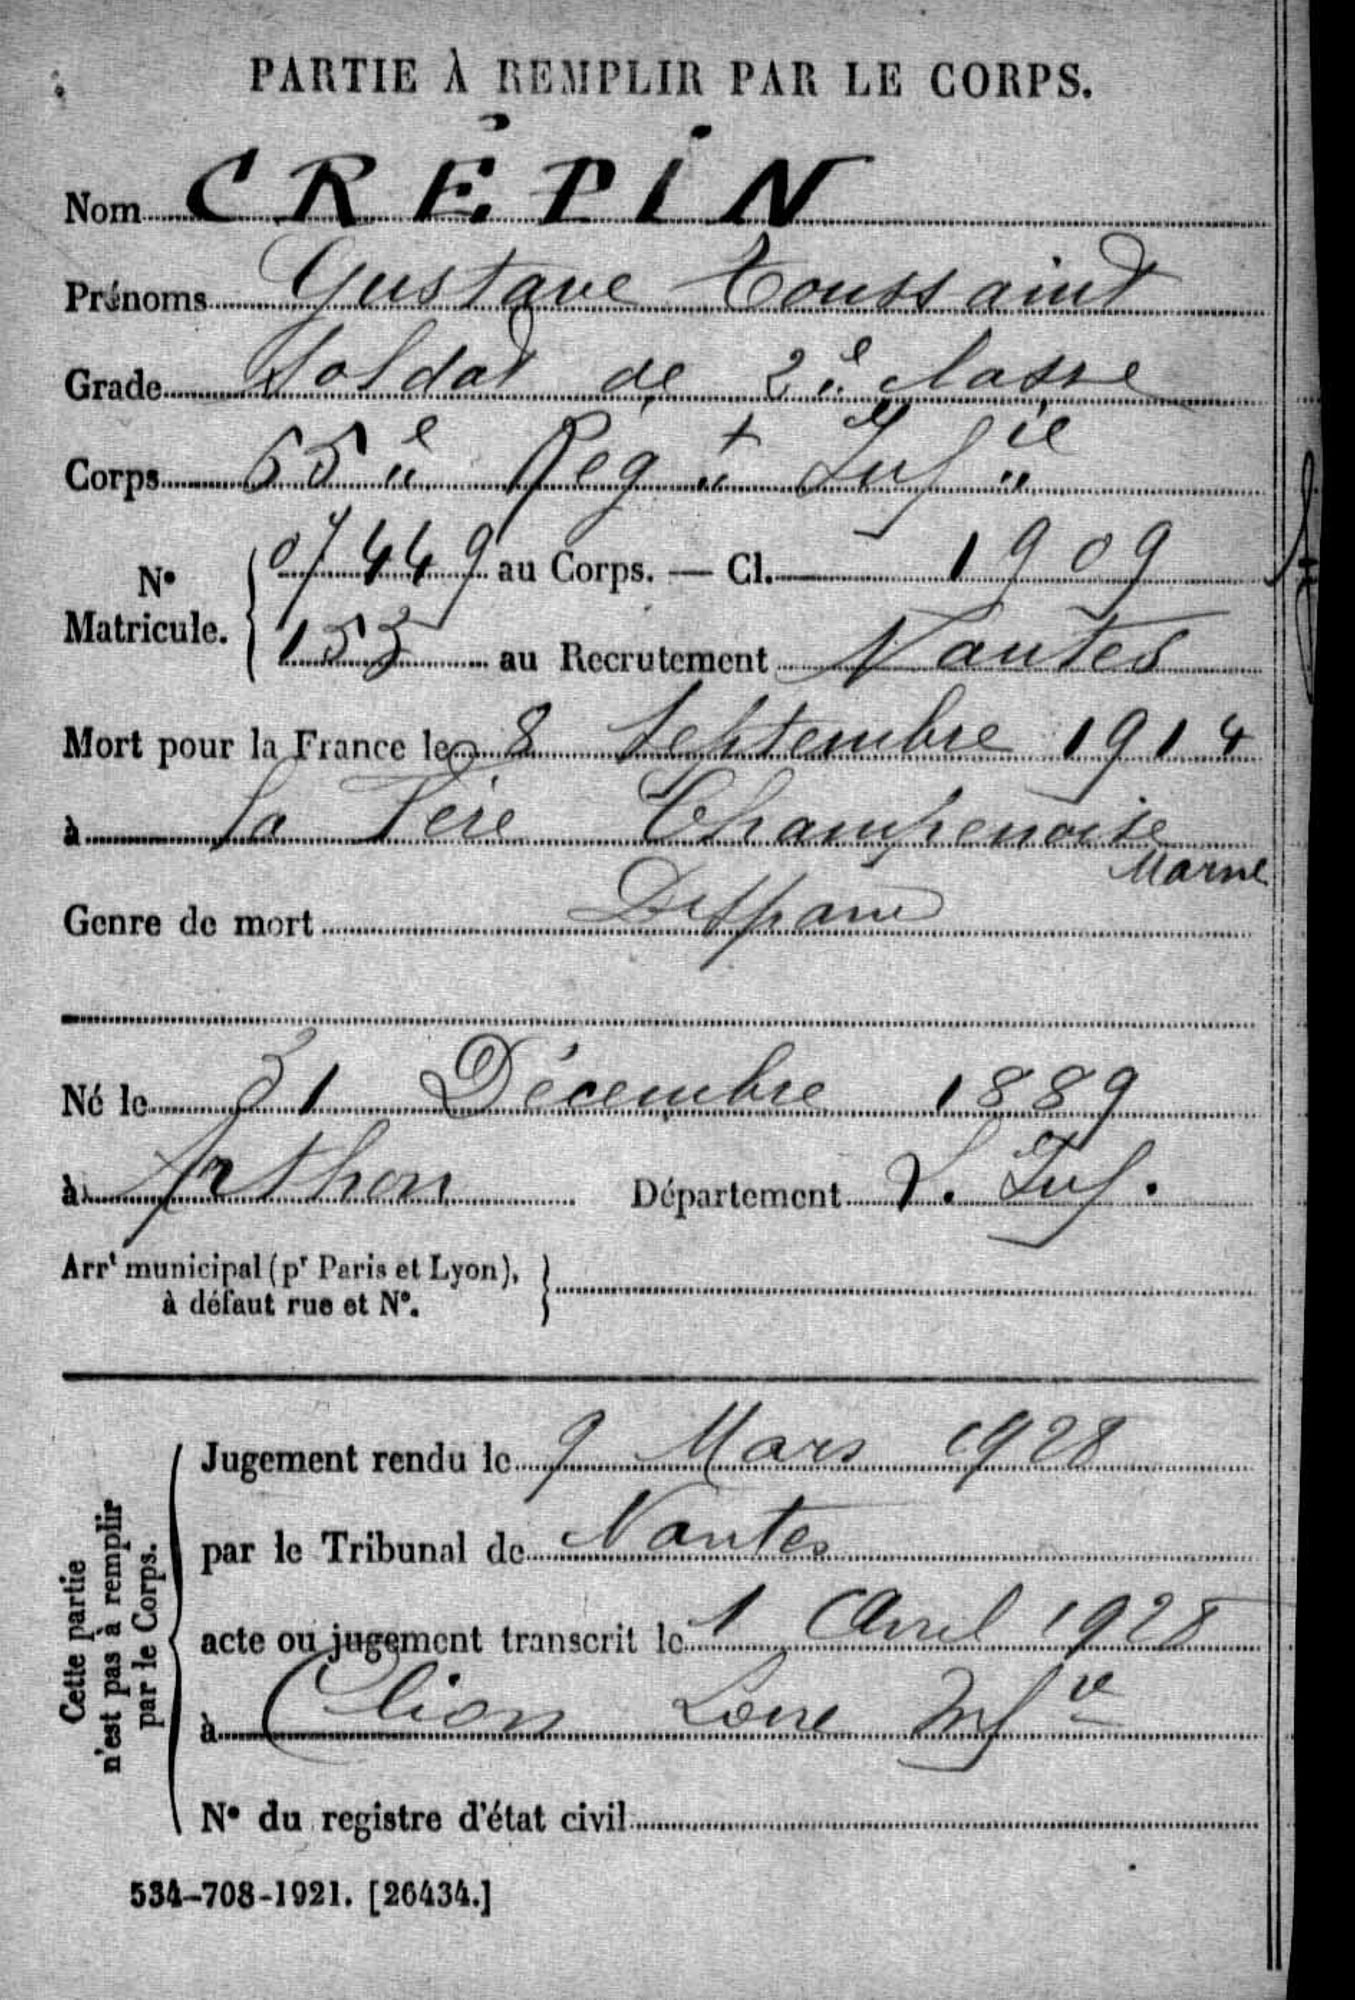 PARTIE À REMPLIR PAR LE CORPS.
Nom CRÉPIN
Prénoms Gustave Toussaint
Grade Soldat de 2e classe
Corps 65e Régt Infie
No Matricule. { 07449 au Corps. — Cl. 1909
155 au Recrutement Nantes
Mort pour la France le 8 Septembre 1914
à la Fère Champenoise
Marne
Genre de mort Disparu
Né le 31 Décembre 1889
à Arthon Département L. Inf.
Arrt municipal (pr Paris et Lyon), à défaut rue et No. }
Cette partie n'est pas à remplir par le Corps.
Jugement rendu le 9 Mars 1928
par le Tribunal de Nantes
acte ou jugement transcrit le 1 Avril 1928
à Clion Loire Infre
No du registre d'état civil
534-708-1921. [26434.]